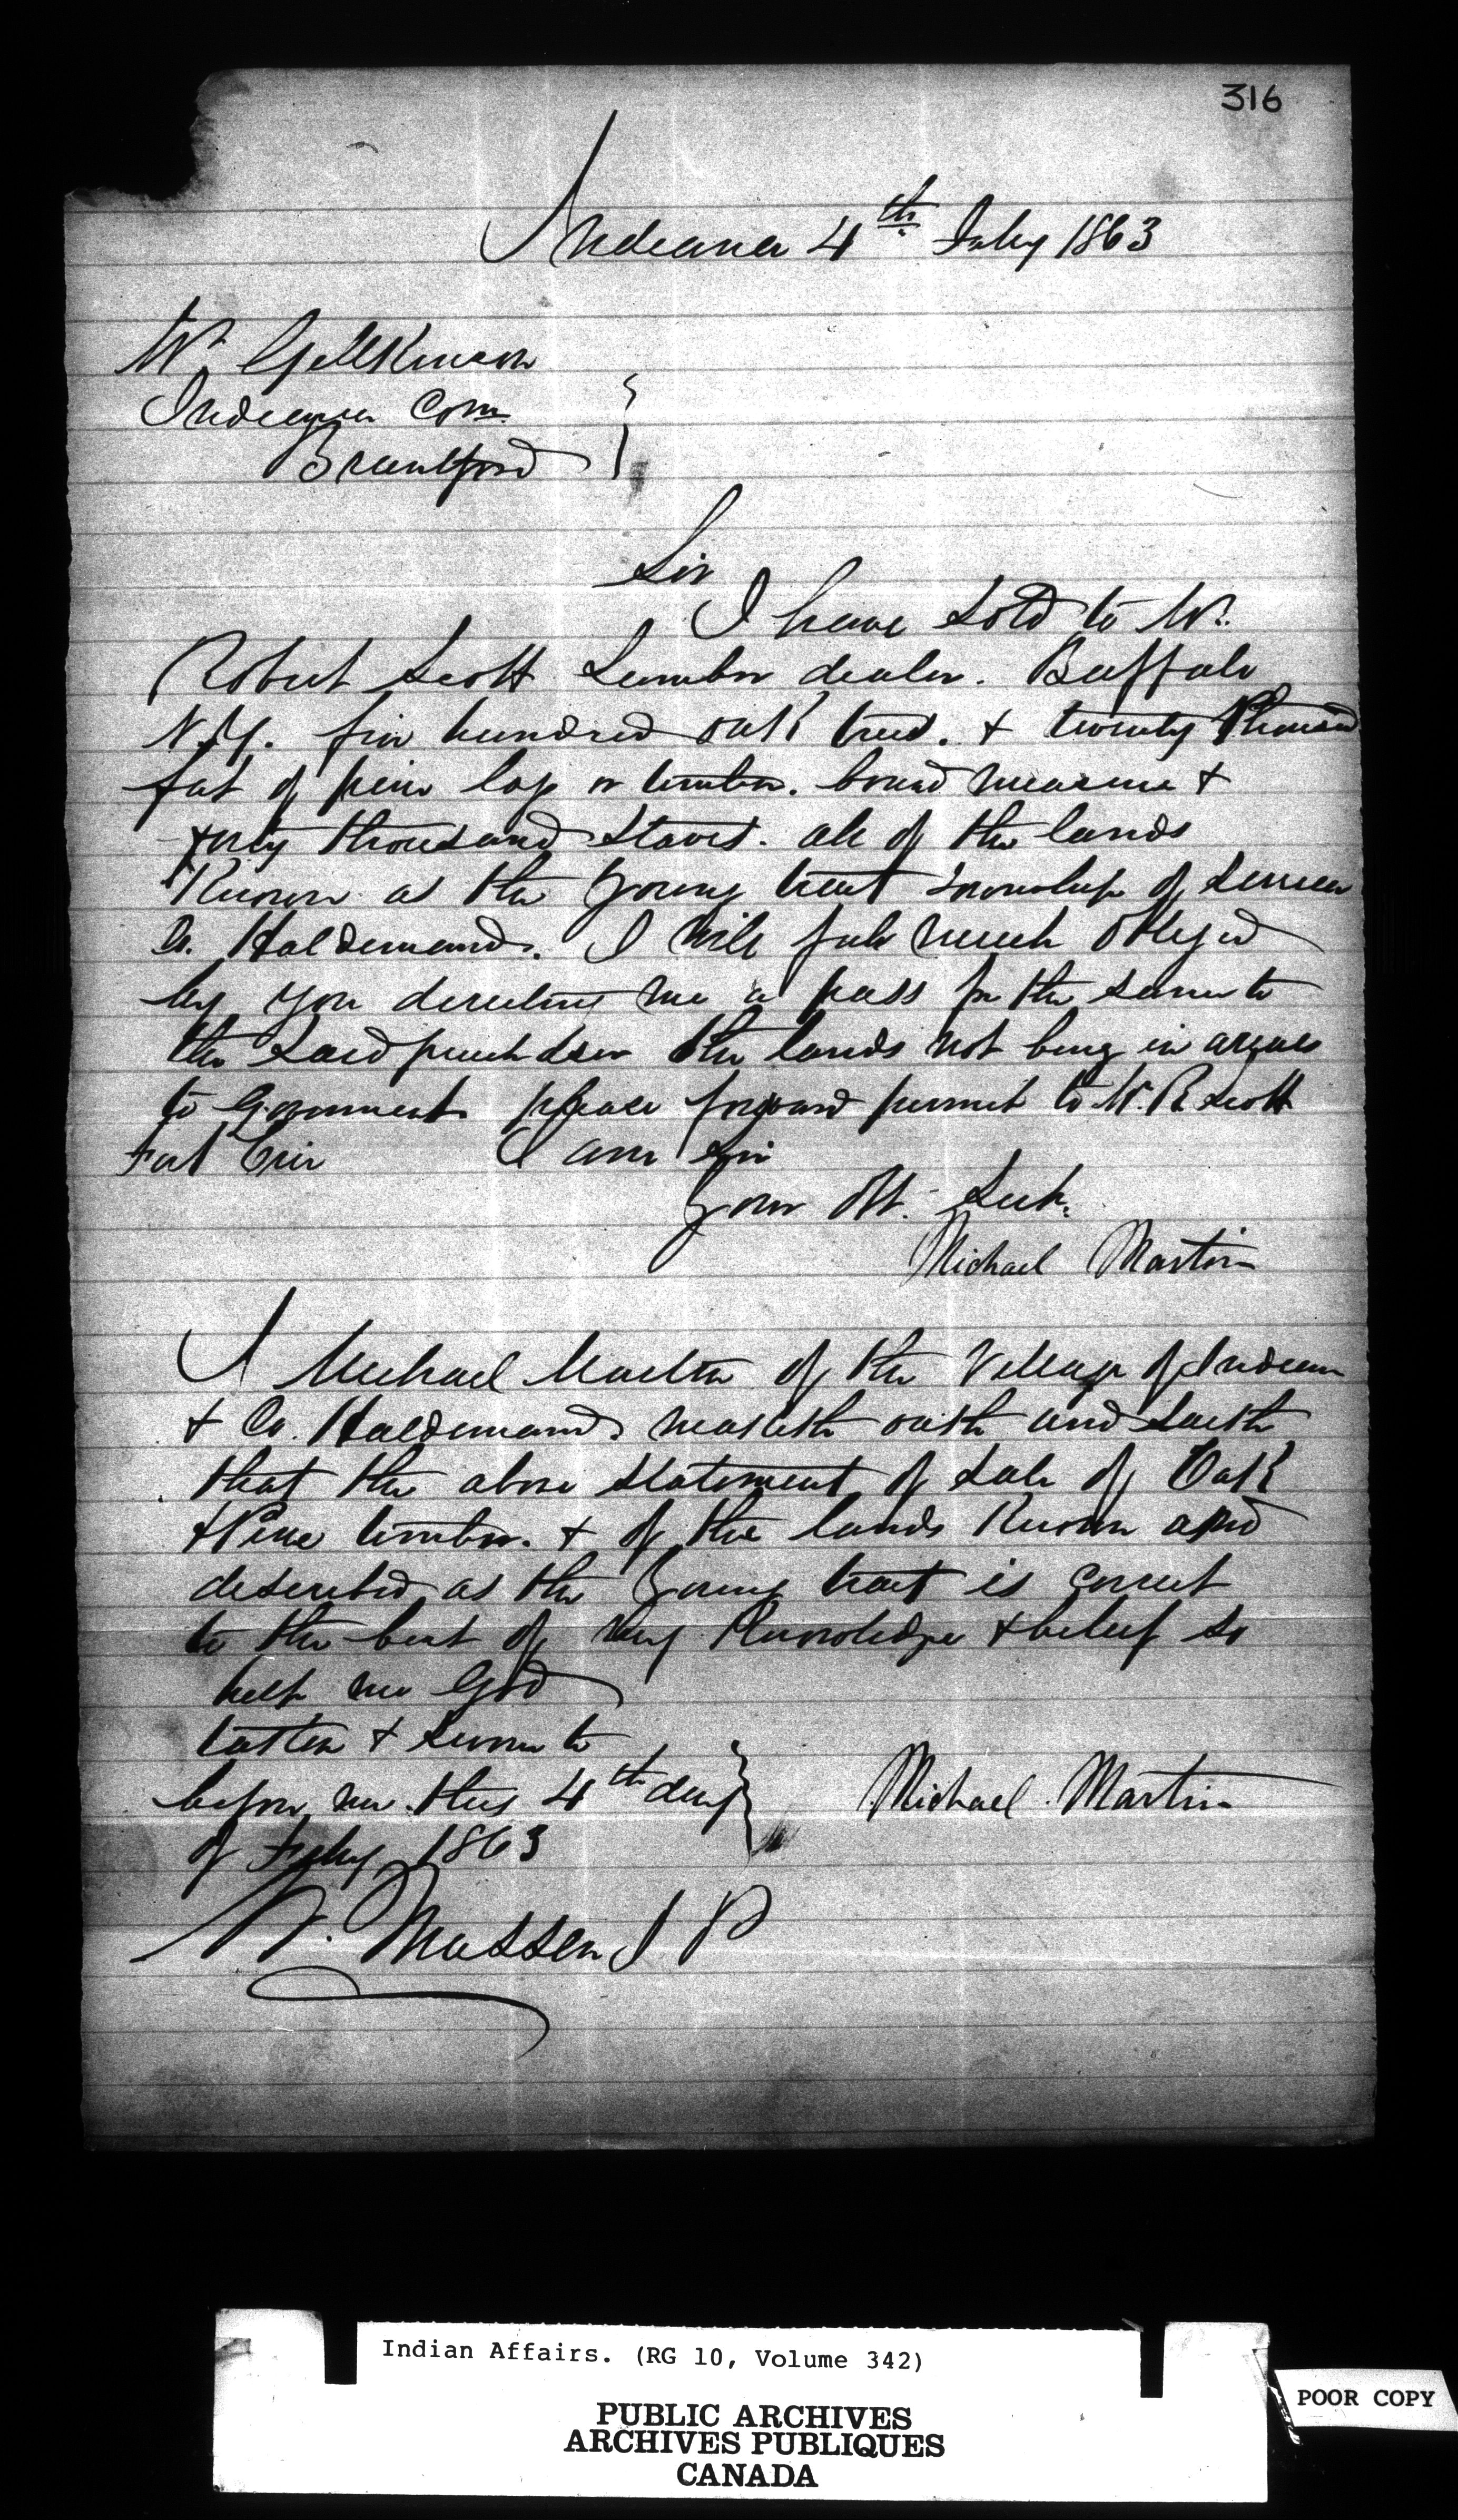 316
Indiana 4th July 1863
Mr Gillkinson
Indian Com
Brantford
Sir
I have sold to Mr.
Robert Scott Lumber dealer. Buffalo
N.Y. five hundred oak trees. & twenty thousand
feet of pine logs or timber. board measure &
forty thousand staves. all of the lands
known as the Young tract Township of Seneca
Co. Haldimand. I will feel much obliged
by you directing me a pass for the same to
the said purchaser the lands not being in arears
to Government please forward permit to Mr. R Scott
Fort Erie I am Sir
Your Obt. Servt.
Michael Martin
I Michael Martin of the Village of Indiana
& Co. Haldimand maketh oath and saith
that the above statement of sale of Oak
& Pine timber. & of the lands known and
described as the Young tract is correct
to the best of my knowledge & belief so
help me God
taken & sworn to
before me this 4th day
of July 1863
Michael Martin
Mussen J P
Indian Affairs. (RG 10, Volume 342)
PUBLIC ARCHIVES
ARCHIVES PUBLIQUES
CANADA
POOR COPY